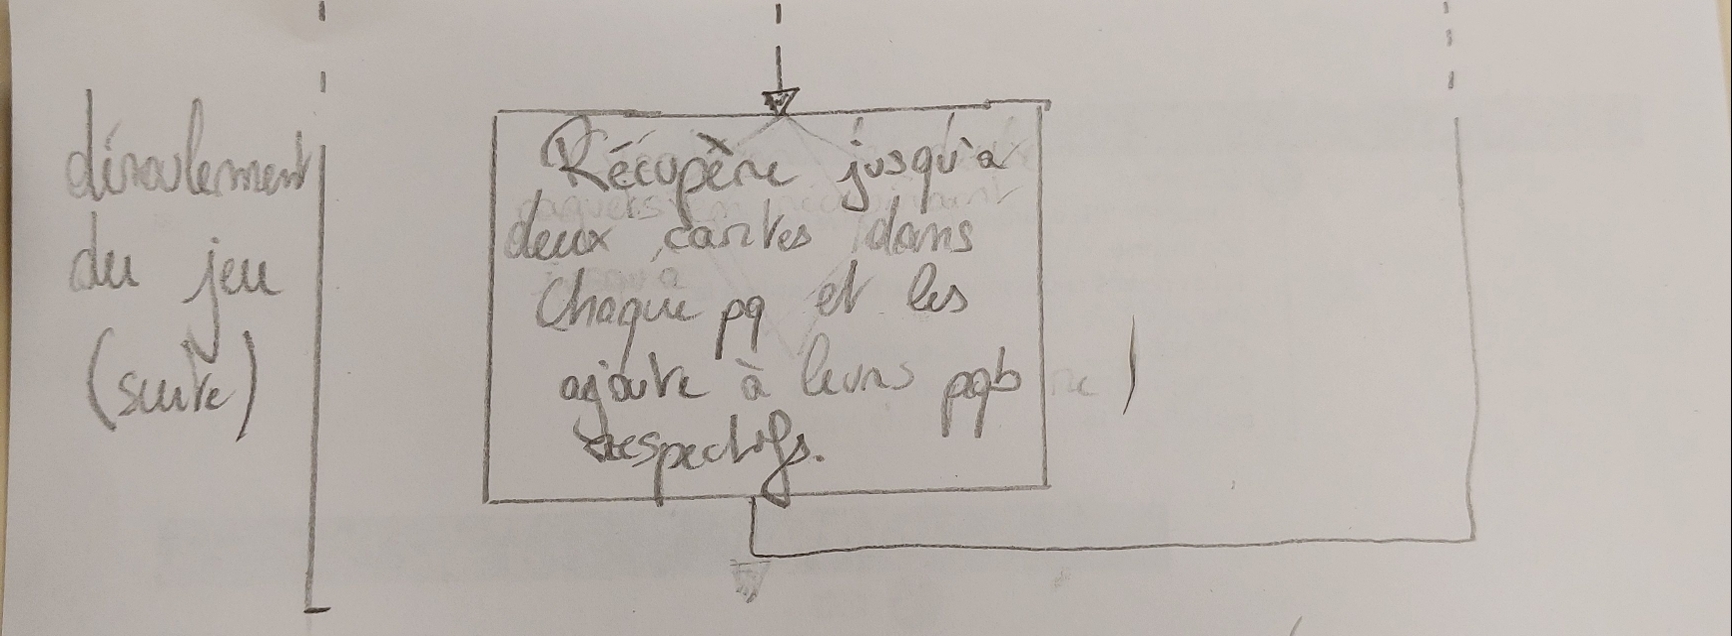 déroulement
du jeu
(suite)
Récupère jusqu'à
deux cartes dans
chaque pq et les
ajoute à leurs pqb
respectifs.